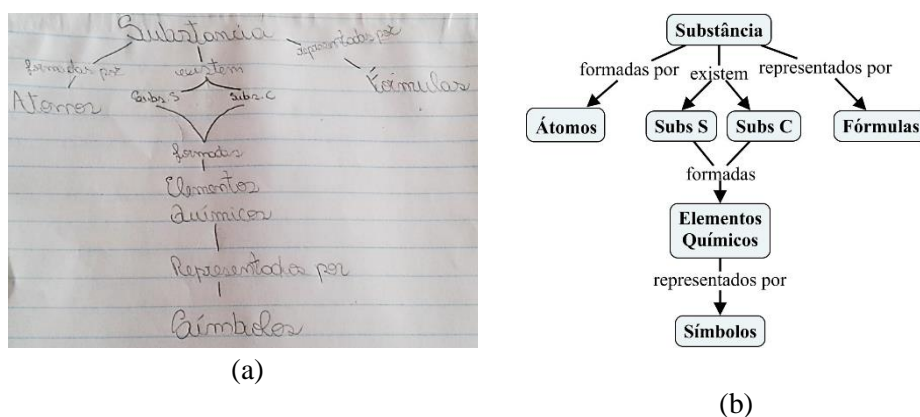 Substância
formadas por
existem
representados por
Atomos
Subs. S
Subs. C
Fórmulas
formadas
Elementos
Químicos
Representados por
Símbolos
(a)
Substância
formadas por
existem
representados por
Átomos
Subs S
Subs C
Fórmulas
formadas
Elementos
Químicos
representados por
Símbolos
(b)